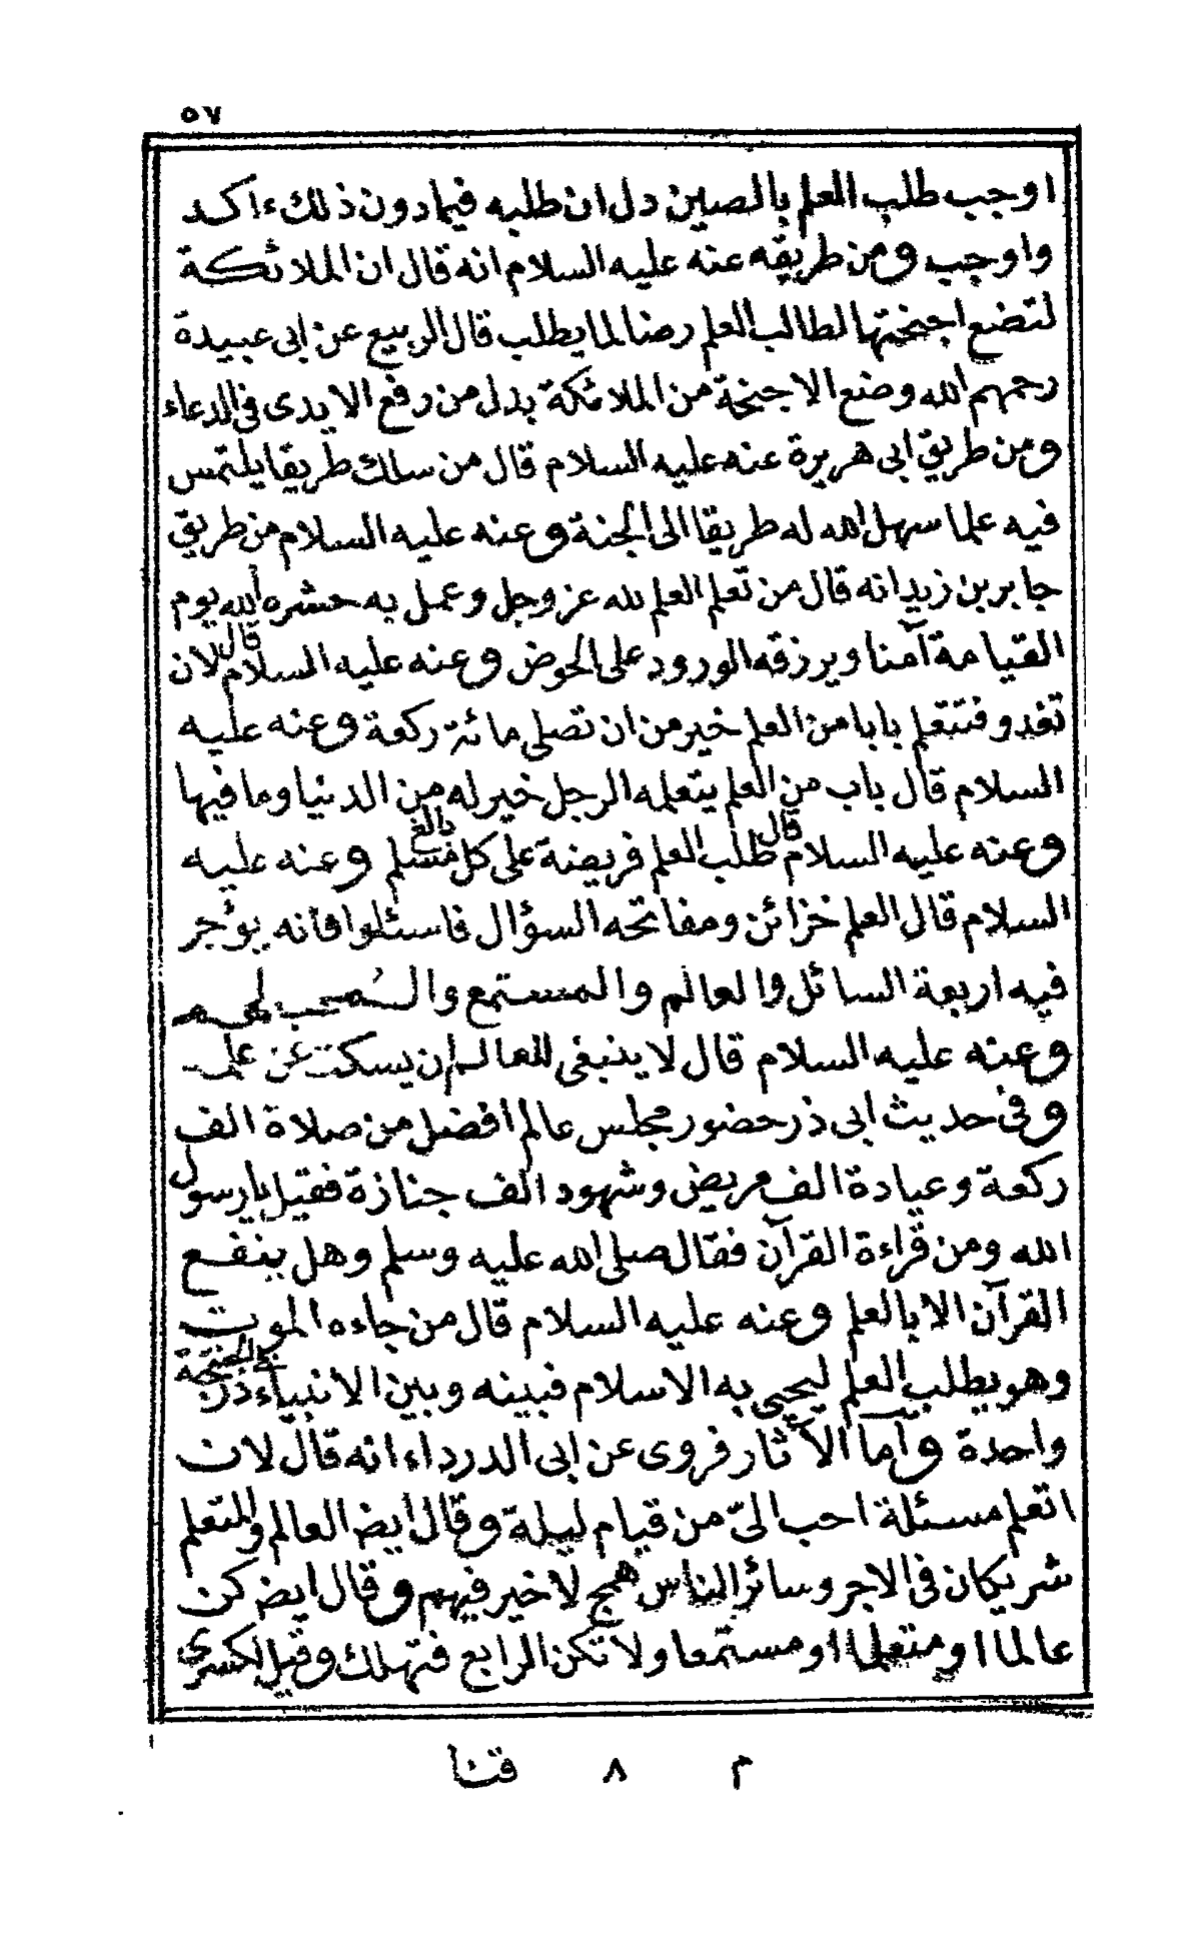 ٥٧
اوجب طلب العلم بالصين دل ان طلبه فيمادون ذلك ءاكد
واوجب ومن طريقه عنه عليه السلام انه قال ان الملائكة
لتضع اجنختها لطالب العلم رضا لما يطلب قال الربيع عن ابى عبيدة
رحمهم الله وضع الاجنخة من الملائكة بدل من رفع الايدى فى الدعاء
ومن طريق ابى هريرة عنه عليه السلام قال من سلك طريقا يلتمس
فيه علما سهل الله له طريقا الى الجنة وعنه عليه السلام من طريق
جابر بن زيد انه قال من تعلم العلم لله عز وجل وعمل به حشره الله يوم
القيامة آمنا ويرزقه الورود على الحوض وعنه عليه السلام قال لان
تغدو فتتعلم بابا من العلم خير من ان تصلى مائة ركعة وعنه عليه
السلام قال باب من العلم يتعلمه الرجل خير له من الدنيا وما فيها
وعنه عليه السلام قال طلب العلم فريضة على كل مسلم بالغ وعنه عليه
السلام قال العلم خزائن ومفاتحه السؤال فاسئلوا فانه يؤجر
فيه اربعة السائل والعالم والمستمع والمحب لهم
وعنه عليه السلام قال لا ينبغى للعالم ان يسكت عن علمه
وفى حديث ابى ذر حضور مجلس عالم افضل من صلاة الف
ركعة وعيادة الف مريض وشهود الف جنازة فقيل يا رسول
الله ومن قراءة القرآن فقال صلى الله عليه وسلم وهل ينفع
القرآن الا بالعلم وعنه عليه السلام قال من جاءه الموت
وهو يطلب العلم ليحيى به الاسلام فبينه وبين الانبياء درجة فى الجنة
واحدة وأما الآثار فروى عن ابى الدرداء انه قال لان
اتعلم مسئلة احب الىّ من قيام ليلة وقال ايضا العالم والمتعلم
شريكان فى الاجر وسائر الناس همج لا خير فيهم وقال ايضا كن
عالما او متعلما او مستمعا ولا تكن الرابع فتهلك وقيل لكسرى
م ٨ قنا